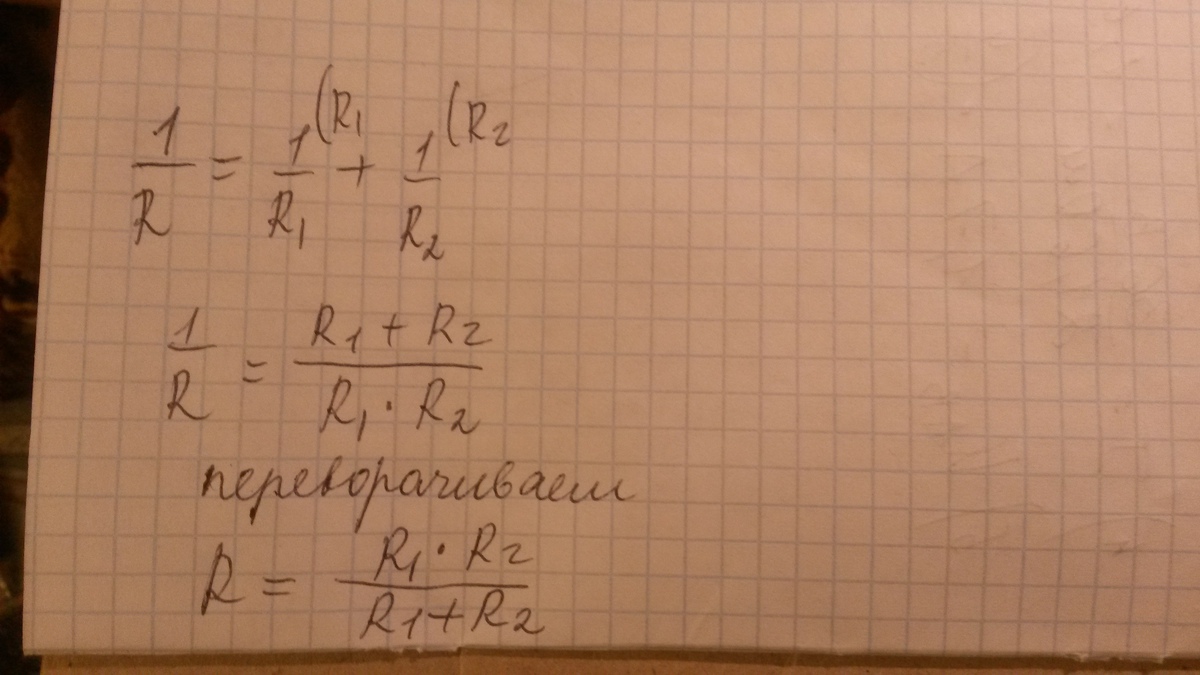 1/R = 1/R₁ (R₁ + 1/R₂ (R₂
1/R = R₁ + R₂ / R₁ · R₂
переворачиваем
R = R₁ · R₂ / R₁ + R₂